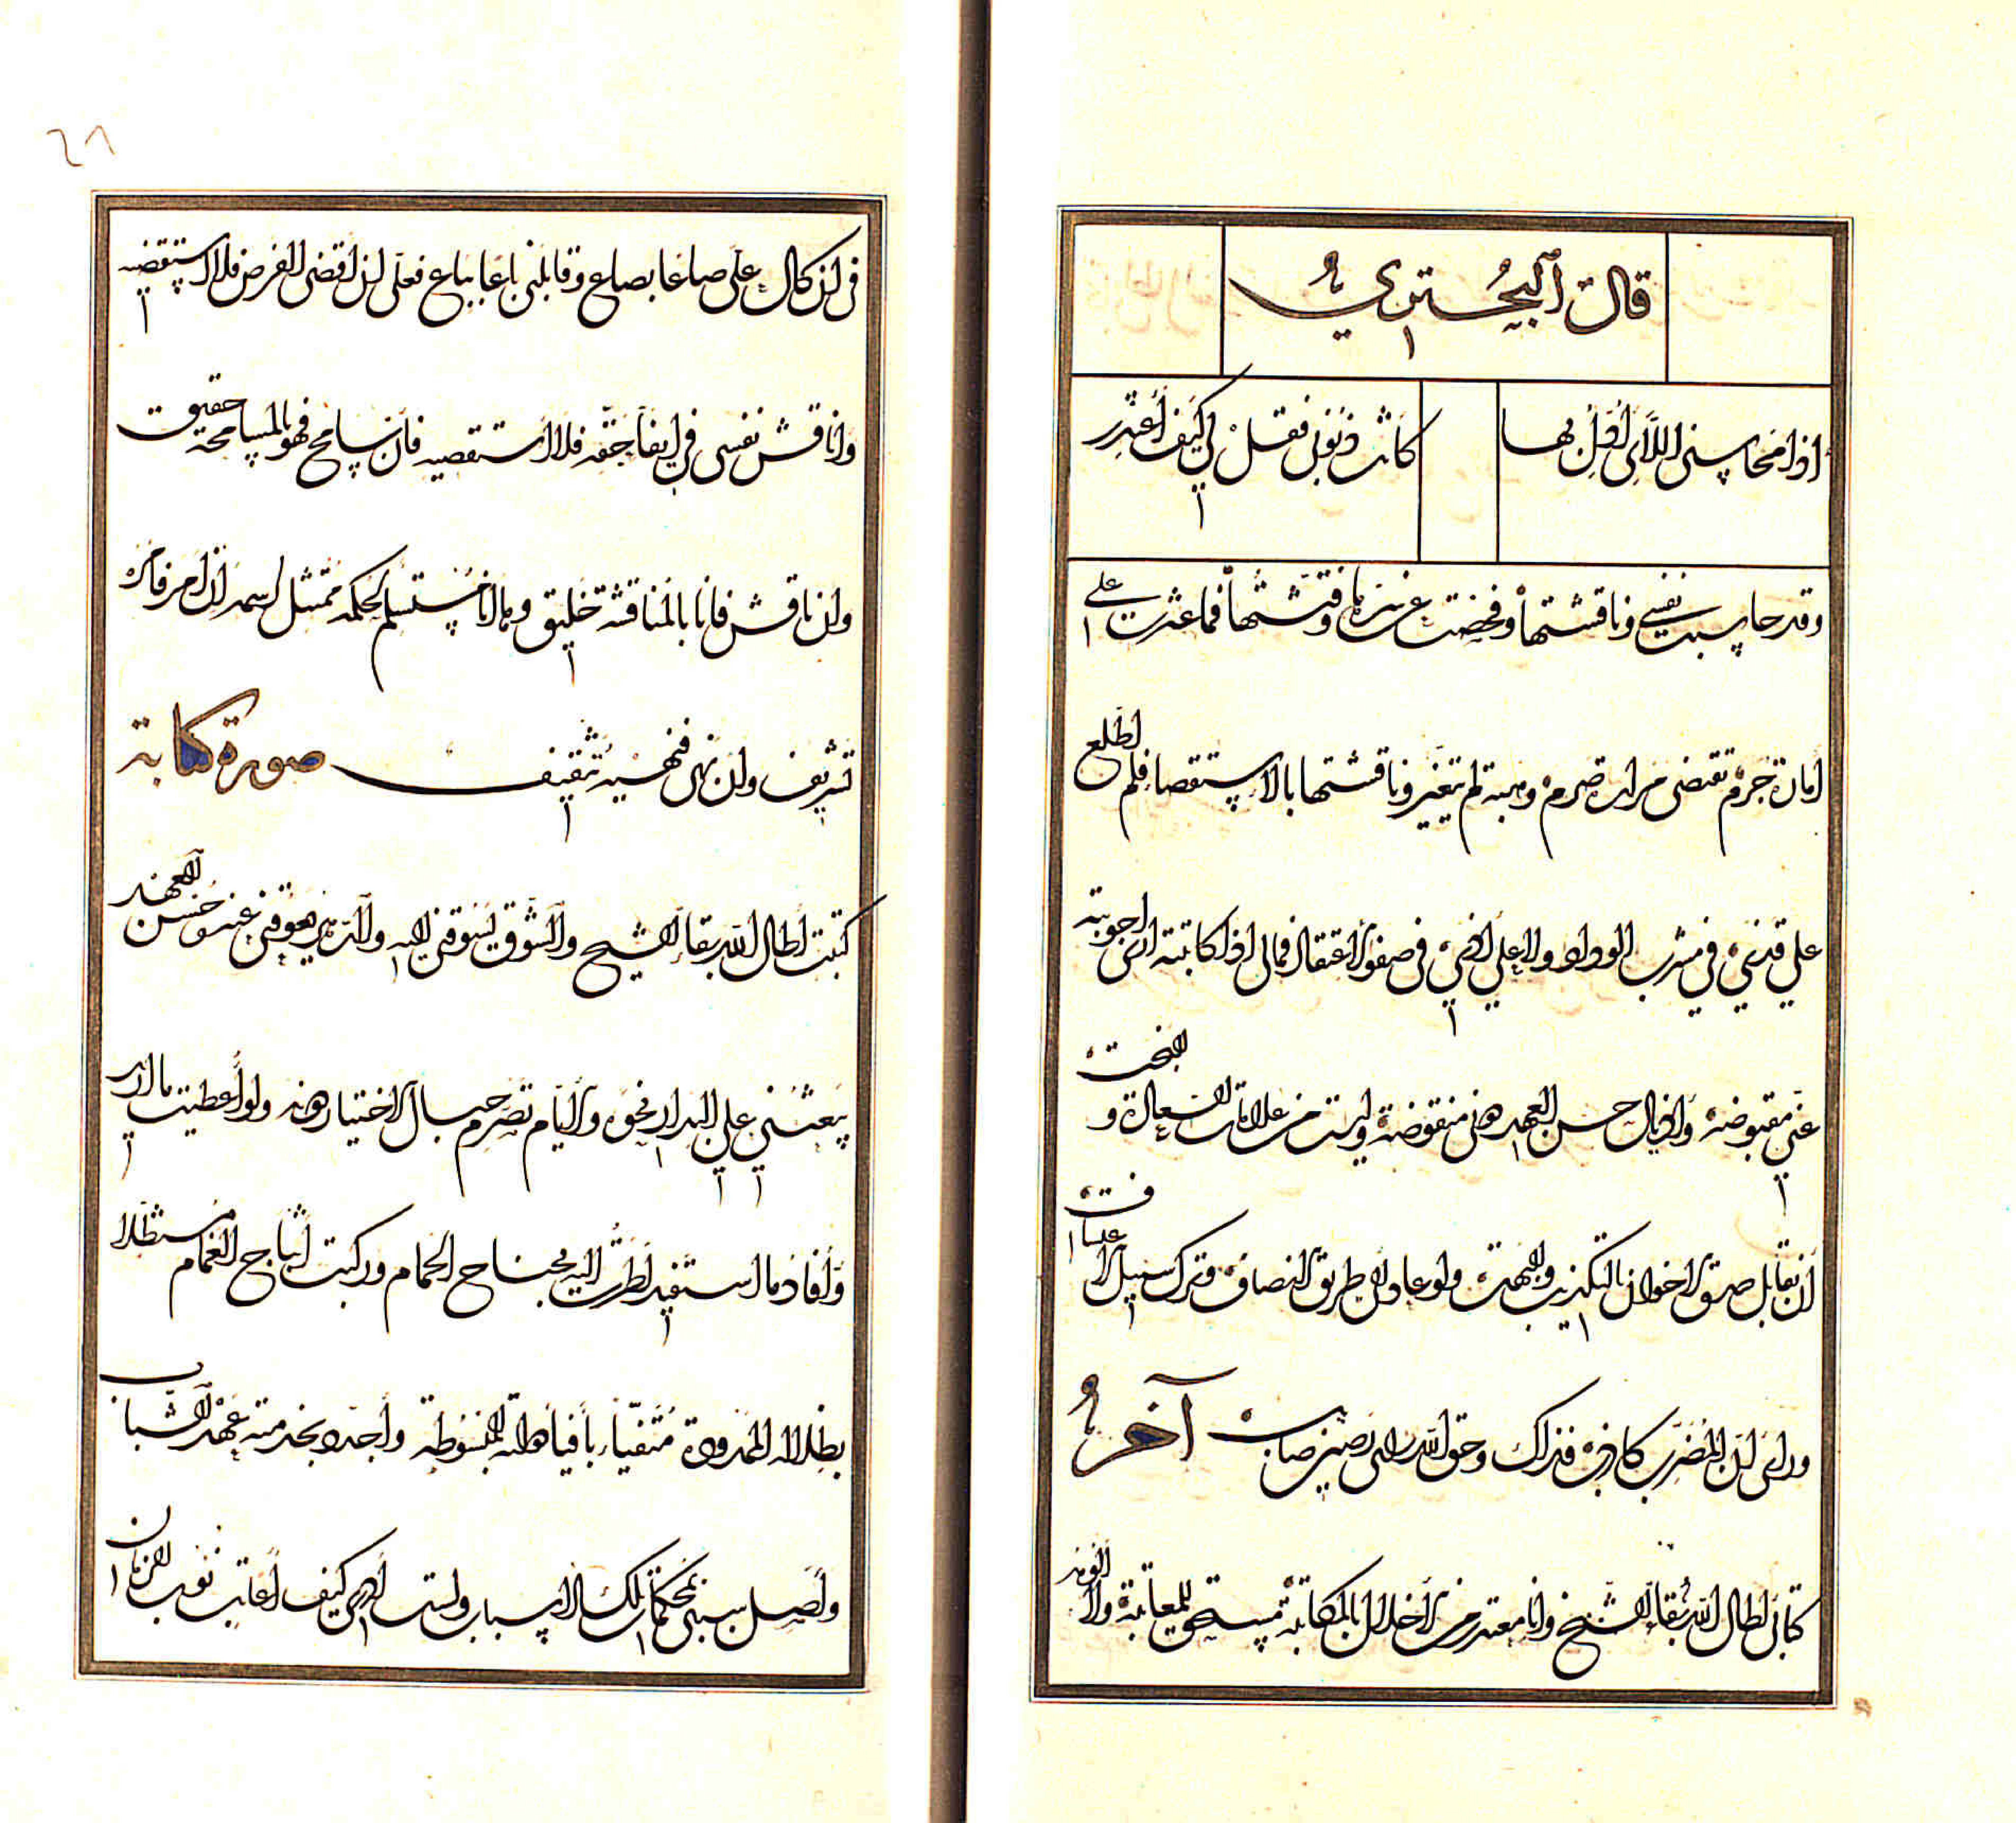 قال البحتري
اذا محاسني اللائي أدل بها
كانت ذنوبي فقل لي كيف أعتذر
وقد حاسبت نفسي وناقشتها وفحصت عن سرها وفتشتها فما عثرت على
امارة جرم تقتضي مرارة صرم ومبة لم يتغير وناقشتها بالاستقصا فلم اطلع
على قذى في مشرب الوداد ولا على اذى في صفو الاعتقاد فمالي اذا كاتبته ارى اجوبته
عني مقبوضة واذيال حسن العهد منقوضة وليست من علامات السعادة و البخت
أن يقابل صدق الاخوان بالتكذيب والبهت ولو عاد الى طريق النصاف وترك سبيل الاعتساف
ورأى ان المضرب كاذب فذاك وحق الله رأى بصير صايب آخر
كتابي اطال الله بقاء الشيخ وانا معتذر من الاخلال بالمكاتبة مستحق للمعاتبة والا
فى ان كال على صاعا بصاع وقابلني باعا بباع فعلى ان اقضي القرض فلا استقضيه
واناقش نفسي في ايفأ حقه فلا استقصيه فان سامح فهو بالمسامحة حقيق
وان ناقش فانا بالمناقشة خليق وها انا مستسلم لحكمه ممتثل لرسمه ان امر فامره
تشريف وان نهى فنهيه تثقيف صورة كتابة
كتبت اطال الله بقاء الشيخ والشوق يسوقني اليه والدهر يعوقني عنه وحسن العهد
يبعثني على البدار نحوه والايام تصرم حبال الاختيار دونه ولو أعطيت ما اريد
وأفاد ما استفيد لطرت اليه بجناح الحمام وركبت اثباج الغمام مستظلا
بظلاله الممدودة متفيأ بأفيائه المبسوطة وأجدد بخدمته عهد الشباب
وأصل سببي بمحكمات تلك الاسباب ولست أدري كيف أعاتب نوب الزمان